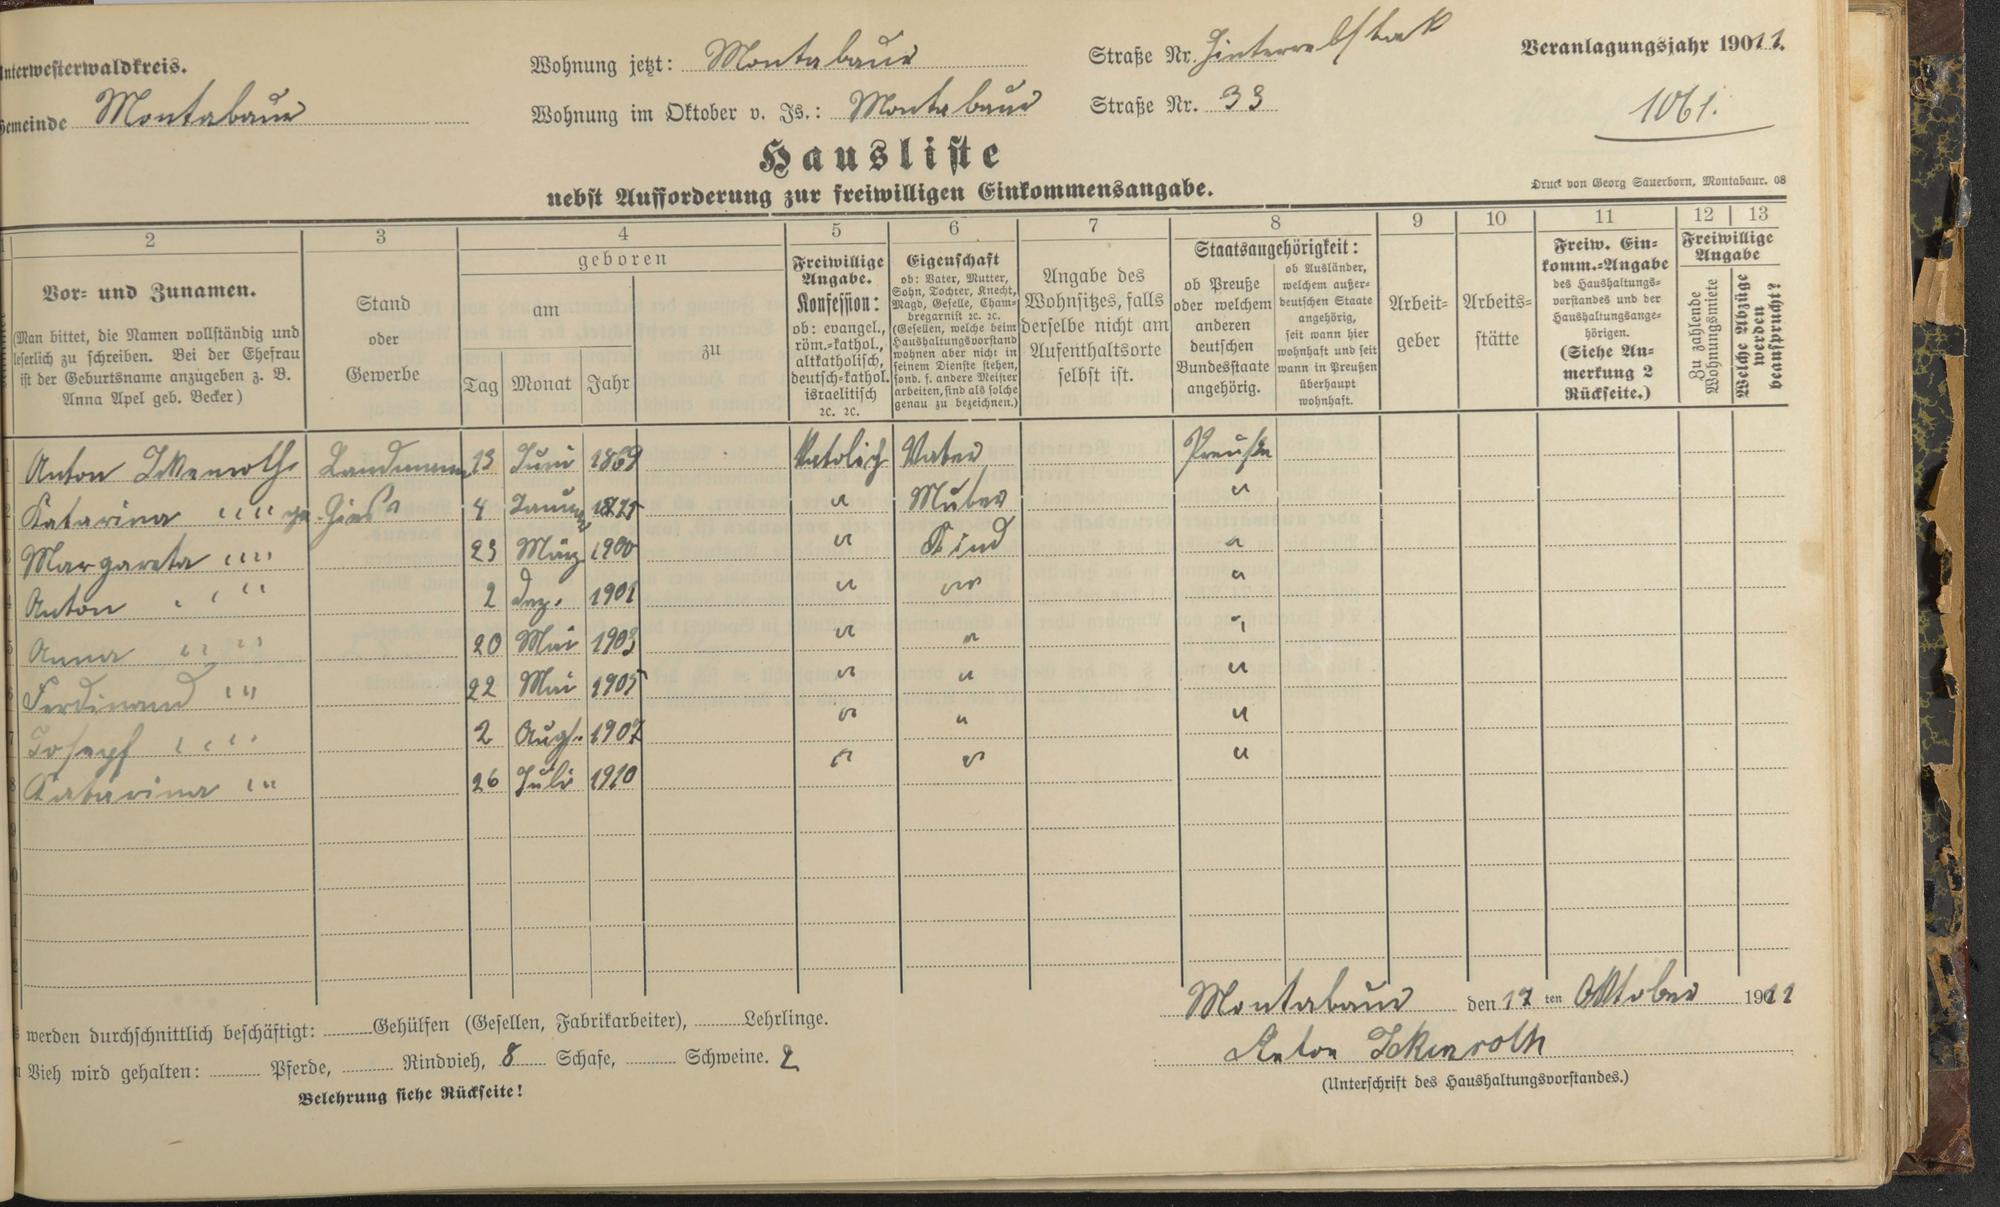 Unterwesterwaldkreis.
Gemeinde Montabaur
Wohnung jetzt: Montabaur Straße Nr.
Wohnung im Oktober v. Js.: Montabaur Straße Nr. 33
Veranlagungsjahr 1911.
1061.
Hausliste
nebst Aufforderung zur freiwilligen Einkommensangabe.
Druck von Georg Sauerborn, Montabaur. 08
2 3 4 5 6 7 8 9 10 11 12 13
Vor- und Zunamen.
(Man bittet, die Namen vollständig und
leserlich zu schreiben. Bei der Ehefrau
ist der Geburtsname anzugeben z. B.
Anna Apel geb. Becker)
Stand
oder
Gewerbe
geboren
am
Tag Monat Jahr
zu
Freiwillige
Angabe.
Konfession:
ob: evangel.,
röm.-kathol.,
altkatholisch,
deutsch-kathol.
israelitisch
ꝛc. ꝛc.
Eigenschaft
ob: Vater, Mutter,
Sohn, Tochter, Knecht,
Magd, Geselle, Cham-
bregarnist ꝛc. ꝛc.
(Gesellen, welche beim
Haushaltungsvorstand
wohnen aber nicht in
seinem Dienste stehen,
sond. f. andere Meister
arbeiten, sind als solche
genau zu bezeichnen.)
Angabe des
Wohnsitzes, falls
derselbe nicht am
Aufenthaltsorte
selbst ist.
Staatsangehörigkeit:
ob Preuße
oder welchem
anderen
deutschen
Bundesstaate
angehörig.
ob Ausländer,
welchem außer-
deutschen Staate
angehörig,
seit wann hier
wohnhaft und seit
wann in Preußen
überhaupt
wohnhaft.
Arbeit-
geber
Arbeits-
stätte
Freiw. Ein-
komm.-Angabe
des Haushaltungs-
vorstandes und der
Haushaltungsange-
hörigen.
(Siehe An-
merkung 2
Rückseite.)
Freiwillige
Angabe
Zu zahlende
Wohnungsmiete
Welche Abzüge
werden
beansprucht?
Anton Ickenroth Landmann 13 Juni 1869 Katolich Vater Preuße
Katarina " " " ge. Gies 4 Januar 1875 " Muter "
Margareta " " " 23 März 1900 " Kind "
Anton " " " 2 Dez. 1901 " " "
Anna " " " 20 Mai 1903 " " "
Ferdinand " " " 22 Mai 1905 " " "
Josepf " " " 2 Augs. 1907 " " "
Katarina " " 26 Juli 1910 " " "
Montabaur den 17 ten Oktober 1911
Anton Ickenroth
(Unterschrift des Haushaltungsvorstandes.)
werden durchschnittlich beschäftigt: Gehülfen (Gesellen, Fabrikarbeiter), Lehrlinge.
Vieh wird gehalten: Pferde, Rindvieh, 8 Schafe, Schweine. 2
Belehrung siehe Rückseite!